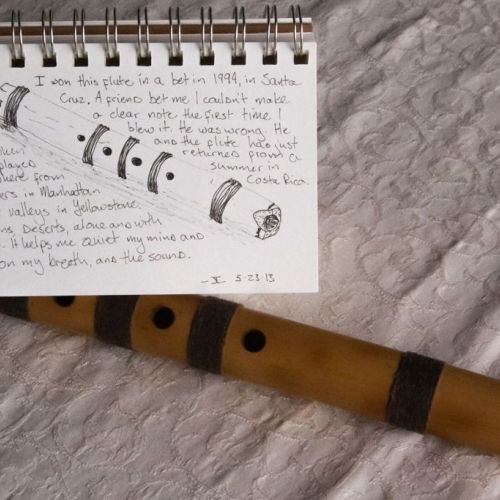 I won this flute in a bet in 1994, in Santa
Cruz. A friend bet me I couldn't make
a clear note the first time I
blew it. He was wrong. He
and the flute has just
returned from a
summer in
Costa Rica.
played
here from
in Manhattan
valleys in Yellowstone
Deserts, alone and with
It helps me quiet my mind and
on my breath, and the sound.
5-23-13